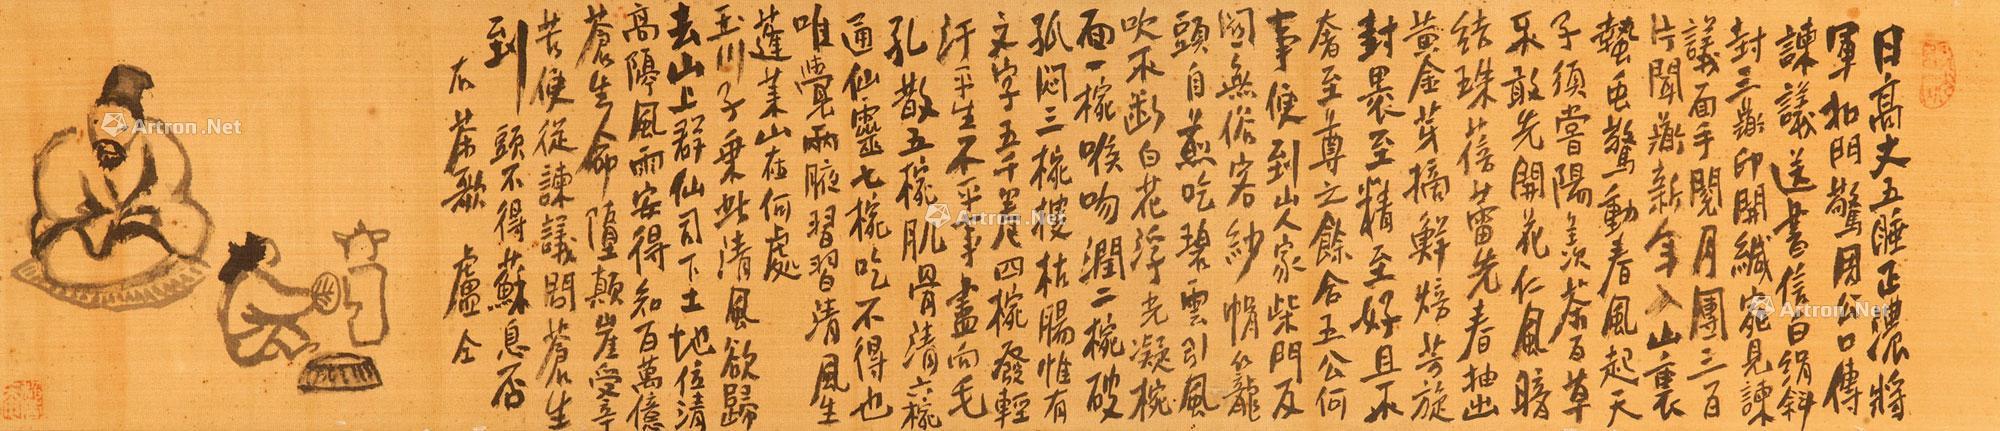 日高丈五睡正濃將
軍扣門驚周公口傳
諫議送書信白絹斜
封三道印開緘宛見諫
議面手閱月團三百
片聞道新年入山裏
蟄蟲驚動春風起天
子須嘗陽羨茶百草
不敢先開花仁風暗
結珠蓓蕾先春抽出
黃金芽摘鮮焙芳旋
封裹至精至好且不
奢至尊之餘合王公何
事便到山人家柴門反
關無俗客紗帽籠
頭自煎吃碧雲引風
吹不斷白花浮光凝椀
面一椀喉吻潤二椀破
孤悶三椀搜枯腸惟有
文字五千卷四椀發輕
汗平生不平事盡向毛
孔散五椀肌骨清六椀
通仙靈七椀吃不得也
唯覺兩腋習習清風生
蓬萊山在何處
玉川子乘此清風欲歸
去山上群仙司下土地位清
高隔風雨安得知百萬億
蒼生命墮顛崖受辛
苦便從諫議問蒼生
到頭不得蘇息否
右茶歌 盧仝
Artron.Net
Artron.Net
Artron.Net
Artron.Net
Artron.Net